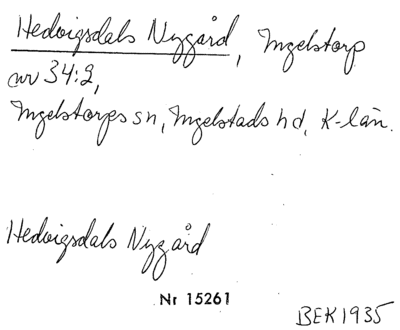 Hedvigsdals Nygård, Ingelstorp
nr 34:2,
Ingelstorps sn, Ingelstads hd, K-län.
Hedvigsdals Nygård
Nr 15261
BEK1935